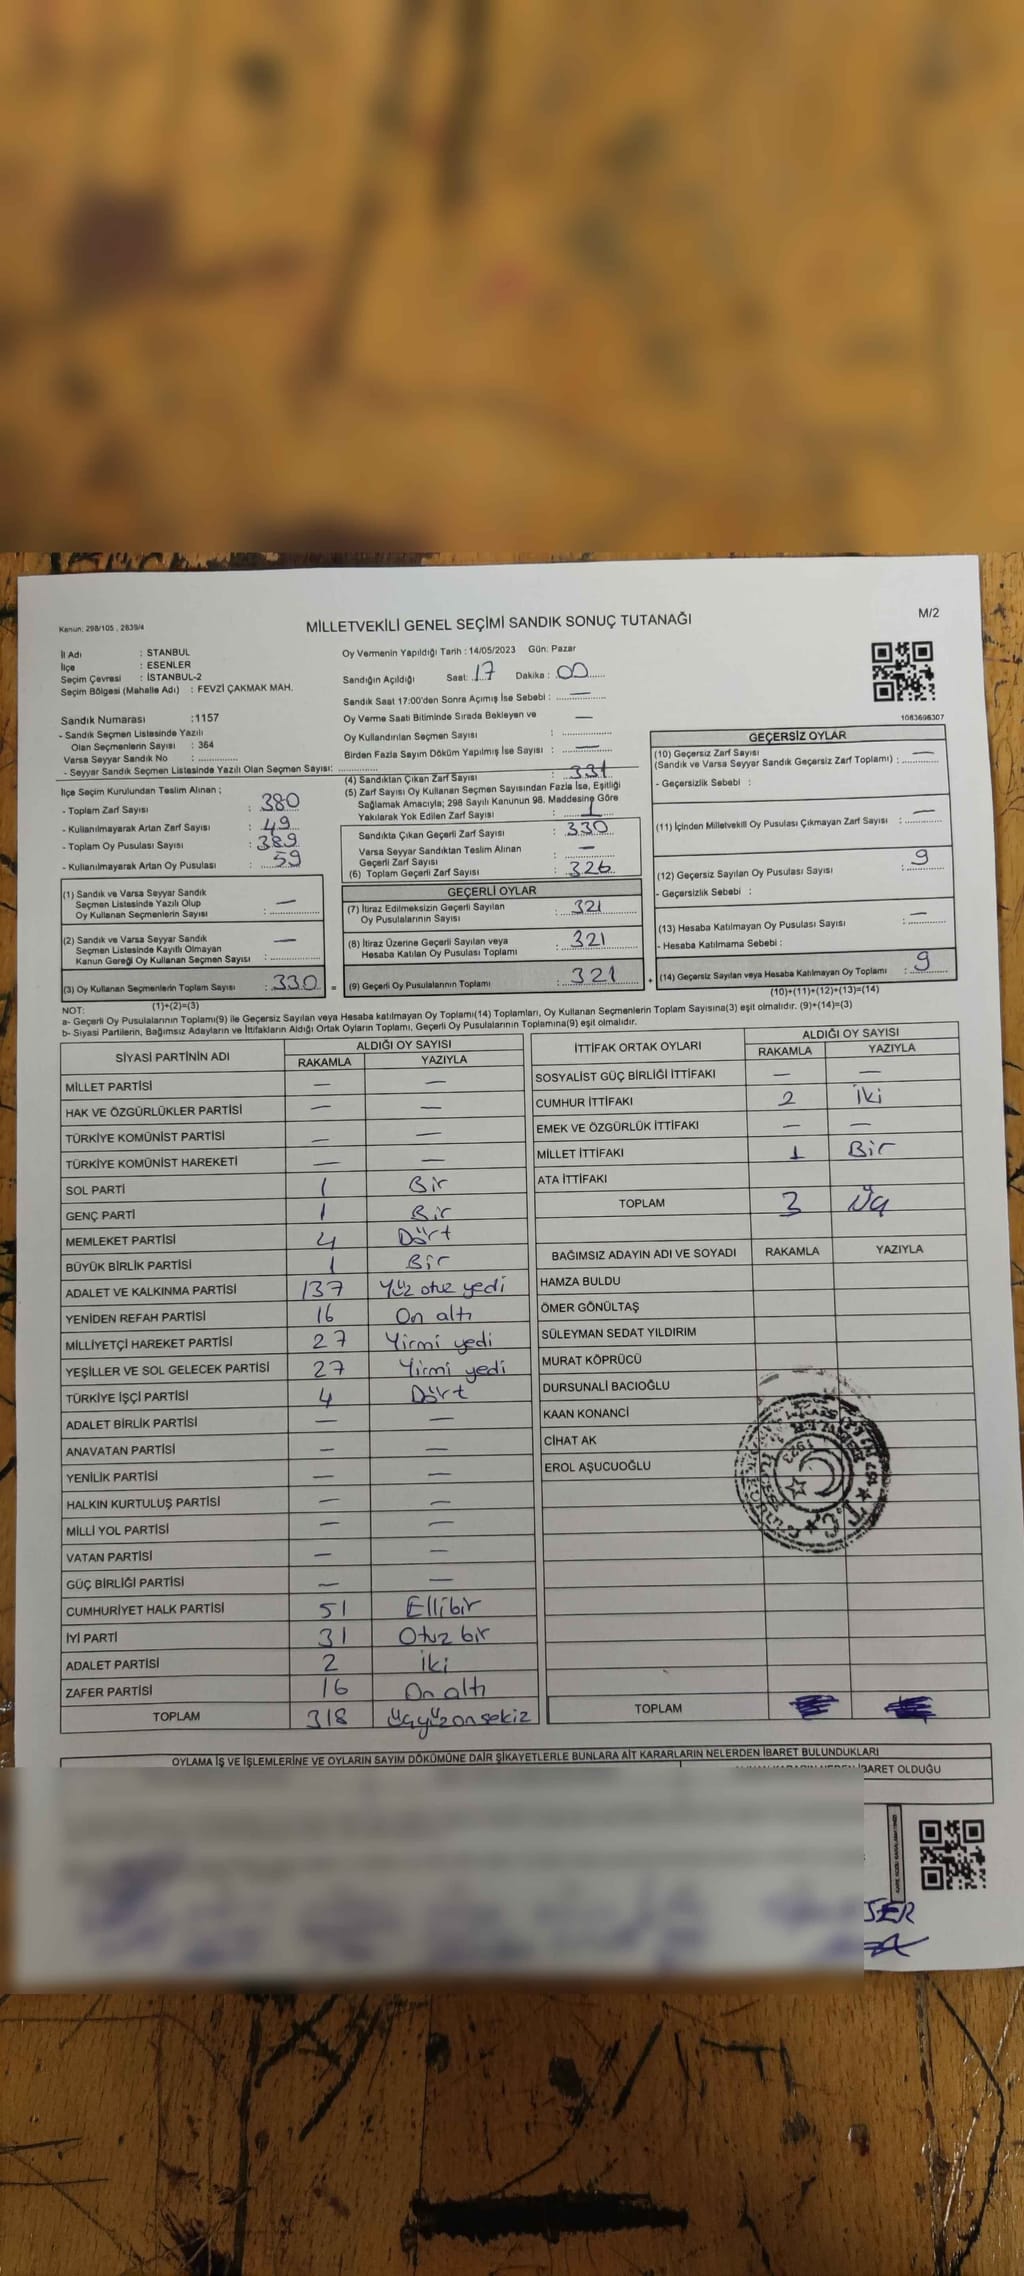 Kanun: 298/105 , 2839/4
MİLLETVEKİLİ GENEL SEÇİMİ SANDIK SONUÇ TUTANAĞI
M/2
İl Adı : STANBUL
İlçe : ESENLER
Seçim Çevresi : İSTANBUL-2
Seçim Bölgesi (Mahalle Adı) : FEVZİ ÇAKMAK MAH.
Sandık Numarası :1157
- Sandık Seçmen Listesinde Yazılı
Olan Seçmenlerin Sayısı : 364
Varsa Seyyar Sandık No :
- Seyyar Sandık Seçmen Listesinde Yazılı Olan Seçmen Sayısı:
Oy Vermenin Yapıldığı Tarih : 14/05/2023 Gün: Pazar
Sandığın Açıldığı Saat: 17 Dakika : 00
Sandık Saat 17:00'den Sonra Açımış İse Sebebi : —
Oy Verme Saati Bitiminde Sırada Bekleyen ve
Oy Kullandırılan Seçmen Sayısı : —
Birden Fazla Sayım Döküm Yapılmış İse Sayısı : —
1083698307
İlçe Seçim Kurulundan Teslim Alınan ;
- Toplam Zarf Sayısı : 380
- Kullanılmayarak Artan Zarf Sayısı : 49
- Toplam Oy Pusulası Sayısı : 389
- Kullanılmayarak Artan Oy Pusulası : 59
(1) Sandık ve Varsa Seyyar Sandık
Seçmen Listesinde Yazılı Olup
Oy Kullanan Seçmenlerin Sayısı : —
(2) Sandık ve Varsa Seyyar Sandık
Seçmen Listesinde Kayıtlı Olmayan
Kanun Gereği Oy Kullanan Seçmen Sayısı : —
(3) Oy Kullanan Seçmenlerin Toplam Sayısı : 330 =
(1)+(2)=(3)
(4) Sandıktan Çıkan Zarf Sayısı : 331
(5) Zarf Sayısı Oy Kullanan Seçmen Sayısından Fazla İse, Eşitliği
Sağlamak Amacıyla; 298 Sayılı Kanunun 98. Maddesine Göre
Yakılarak Yok Edilen Zarf Sayısı : 1
Sandıkta Çıkan Geçerli Zarf Sayısı : 330
Varsa Seyyar Sandıktan Teslim Alınan
Geçerli Zarf Sayısı : —
(6) Toplam Geçerli Zarf Sayısı : 326
GEÇERLİ OYLAR
(7) İtiraz Edilmeksizin Geçerli Sayılan
Oy Pusulalarının Sayısı : 321
(8) İtiraz Üzerine Geçerli Sayılan veya
Hesaba Katılan Oy Pusulası Toplamı : 321
(9) Geçerli Oy Pusulalarının Toplamı : 321 +
GEÇERSİZ OYLAR
(10) Geçersiz Zarf Sayısı
(Sandık ve Varsa Seyyar Sandık Geçersiz Zarf Toplamı) : —
- Geçersizlik Sebebi :
(11) İçinden Milletvekili Oy Pusulası Çıkmayan Zarf Sayısı : —
(12) Geçersiz Sayılan Oy Pusulası Sayısı : 9
- Geçersizlik Sebebi :
(13) Hesaba Katılmayan Oy Pusulası Sayısı : —
- Hesaba Katılmama Sebebi :
(14) Geçersiz Sayılan veya Hesaba Katılmayan Oy Toplamı : 9
(10)+(11)+(12)+(13)=(14)
NOT:
a- Geçerli Oy Pusulalarının Toplamı(9) ile Geçersiz Sayılan veya Hesaba katılmayan Oy Toplamı(14) Toplamları, Oy Kullanan Seçmenlerin Toplam Sayısına(3) eşit olmalıdır. (9)+(14)=(3)
b- Siyasi Partilerin, Bağımsız Adayların ve İttifakların Aldığı Ortak Oyların Toplamı, Geçerli Oy Pusulalarının Toplamına(9) eşit olmalıdır.
SİYASİ PARTİNİN ADI ALDIĞI OY SAYISI
RAKAMLA YAZIYLA
MİLLET PARTİSİ — —
HAK VE ÖZGÜRLÜKLER PARTİSİ — —
TÜRKİYE KOMÜNİST PARTİSİ — —
TÜRKİYE KOMÜNİST HAREKETİ — —
SOL PARTİ 1 Bir
GENÇ PARTİ 1 Bir
MEMLEKET PARTİSİ 4 Dört
BÜYÜK BİRLİK PARTİSİ 1 Bir
ADALET VE KALKINMA PARTİSİ 137 Yüz otuz yedi
YENİDEN REFAH PARTİSİ 16 On altı
MİLLİYETÇİ HAREKET PARTİSİ 27 Yirmi yedi
YEŞİLLER VE SOL GELECEK PARTİSİ 27 Yirmi yedi
TÜRKİYE İŞÇİ PARTİSİ 4 Dört
ADALET BİRLİK PARTİSİ — —
ANAVATAN PARTİSİ — —
YENİLİK PARTİSİ — —
HALKIN KURTULUŞ PARTİSİ — —
MİLLİ YOL PARTİSİ — —
VATAN PARTİSİ — —
GÜÇ BİRLİĞİ PARTİSİ — —
CUMHURİYET HALK PARTİSİ 51 Ellibir
İYİ PARTİ 31 Otuz bir
ADALET PARTİSİ 2 İki
ZAFER PARTİSİ 16 On altı
TOPLAM 318 üçyüzonsekiz
İTTİFAK ORTAK OYLARI ALDIĞI OY SAYISI
RAKAMLA YAZIYLA
SOSYALİST GÜÇ BİRLİĞİ İTTİFAKI — —
CUMHUR İTTİFAKI 2 İki
EMEK VE ÖZGÜRLÜK İTTİFAKI — —
MİLLET İTTİFAKI 1 Bir
ATA İTTİFAKI
TOPLAM 3 Üç
BAĞIMSIZ ADAYIN ADI VE SOYADI RAKAMLA YAZIYLA
HAMZA BULDU
ÖMER GÖNÜLTAŞ
SÜLEYMAN SEDAT YILDIRIM
MURAT KÖPRÜCÜ
DURSUNALİ BACIOĞLU
KAAN KONANCİ
CİHAT AK
EROL AŞUCUOĞLU
T.C.
TOPLAM
OYLAMA İŞ VE İŞLEMLERİNE VE OYLARIN SAYIM DÖKÜMÜNE DAİR ŞİKAYETLERLE BUNLARA AİT KARARLARIN NELERDEN İBARET BULUNDUKLARI
İBARET OLDUĞU